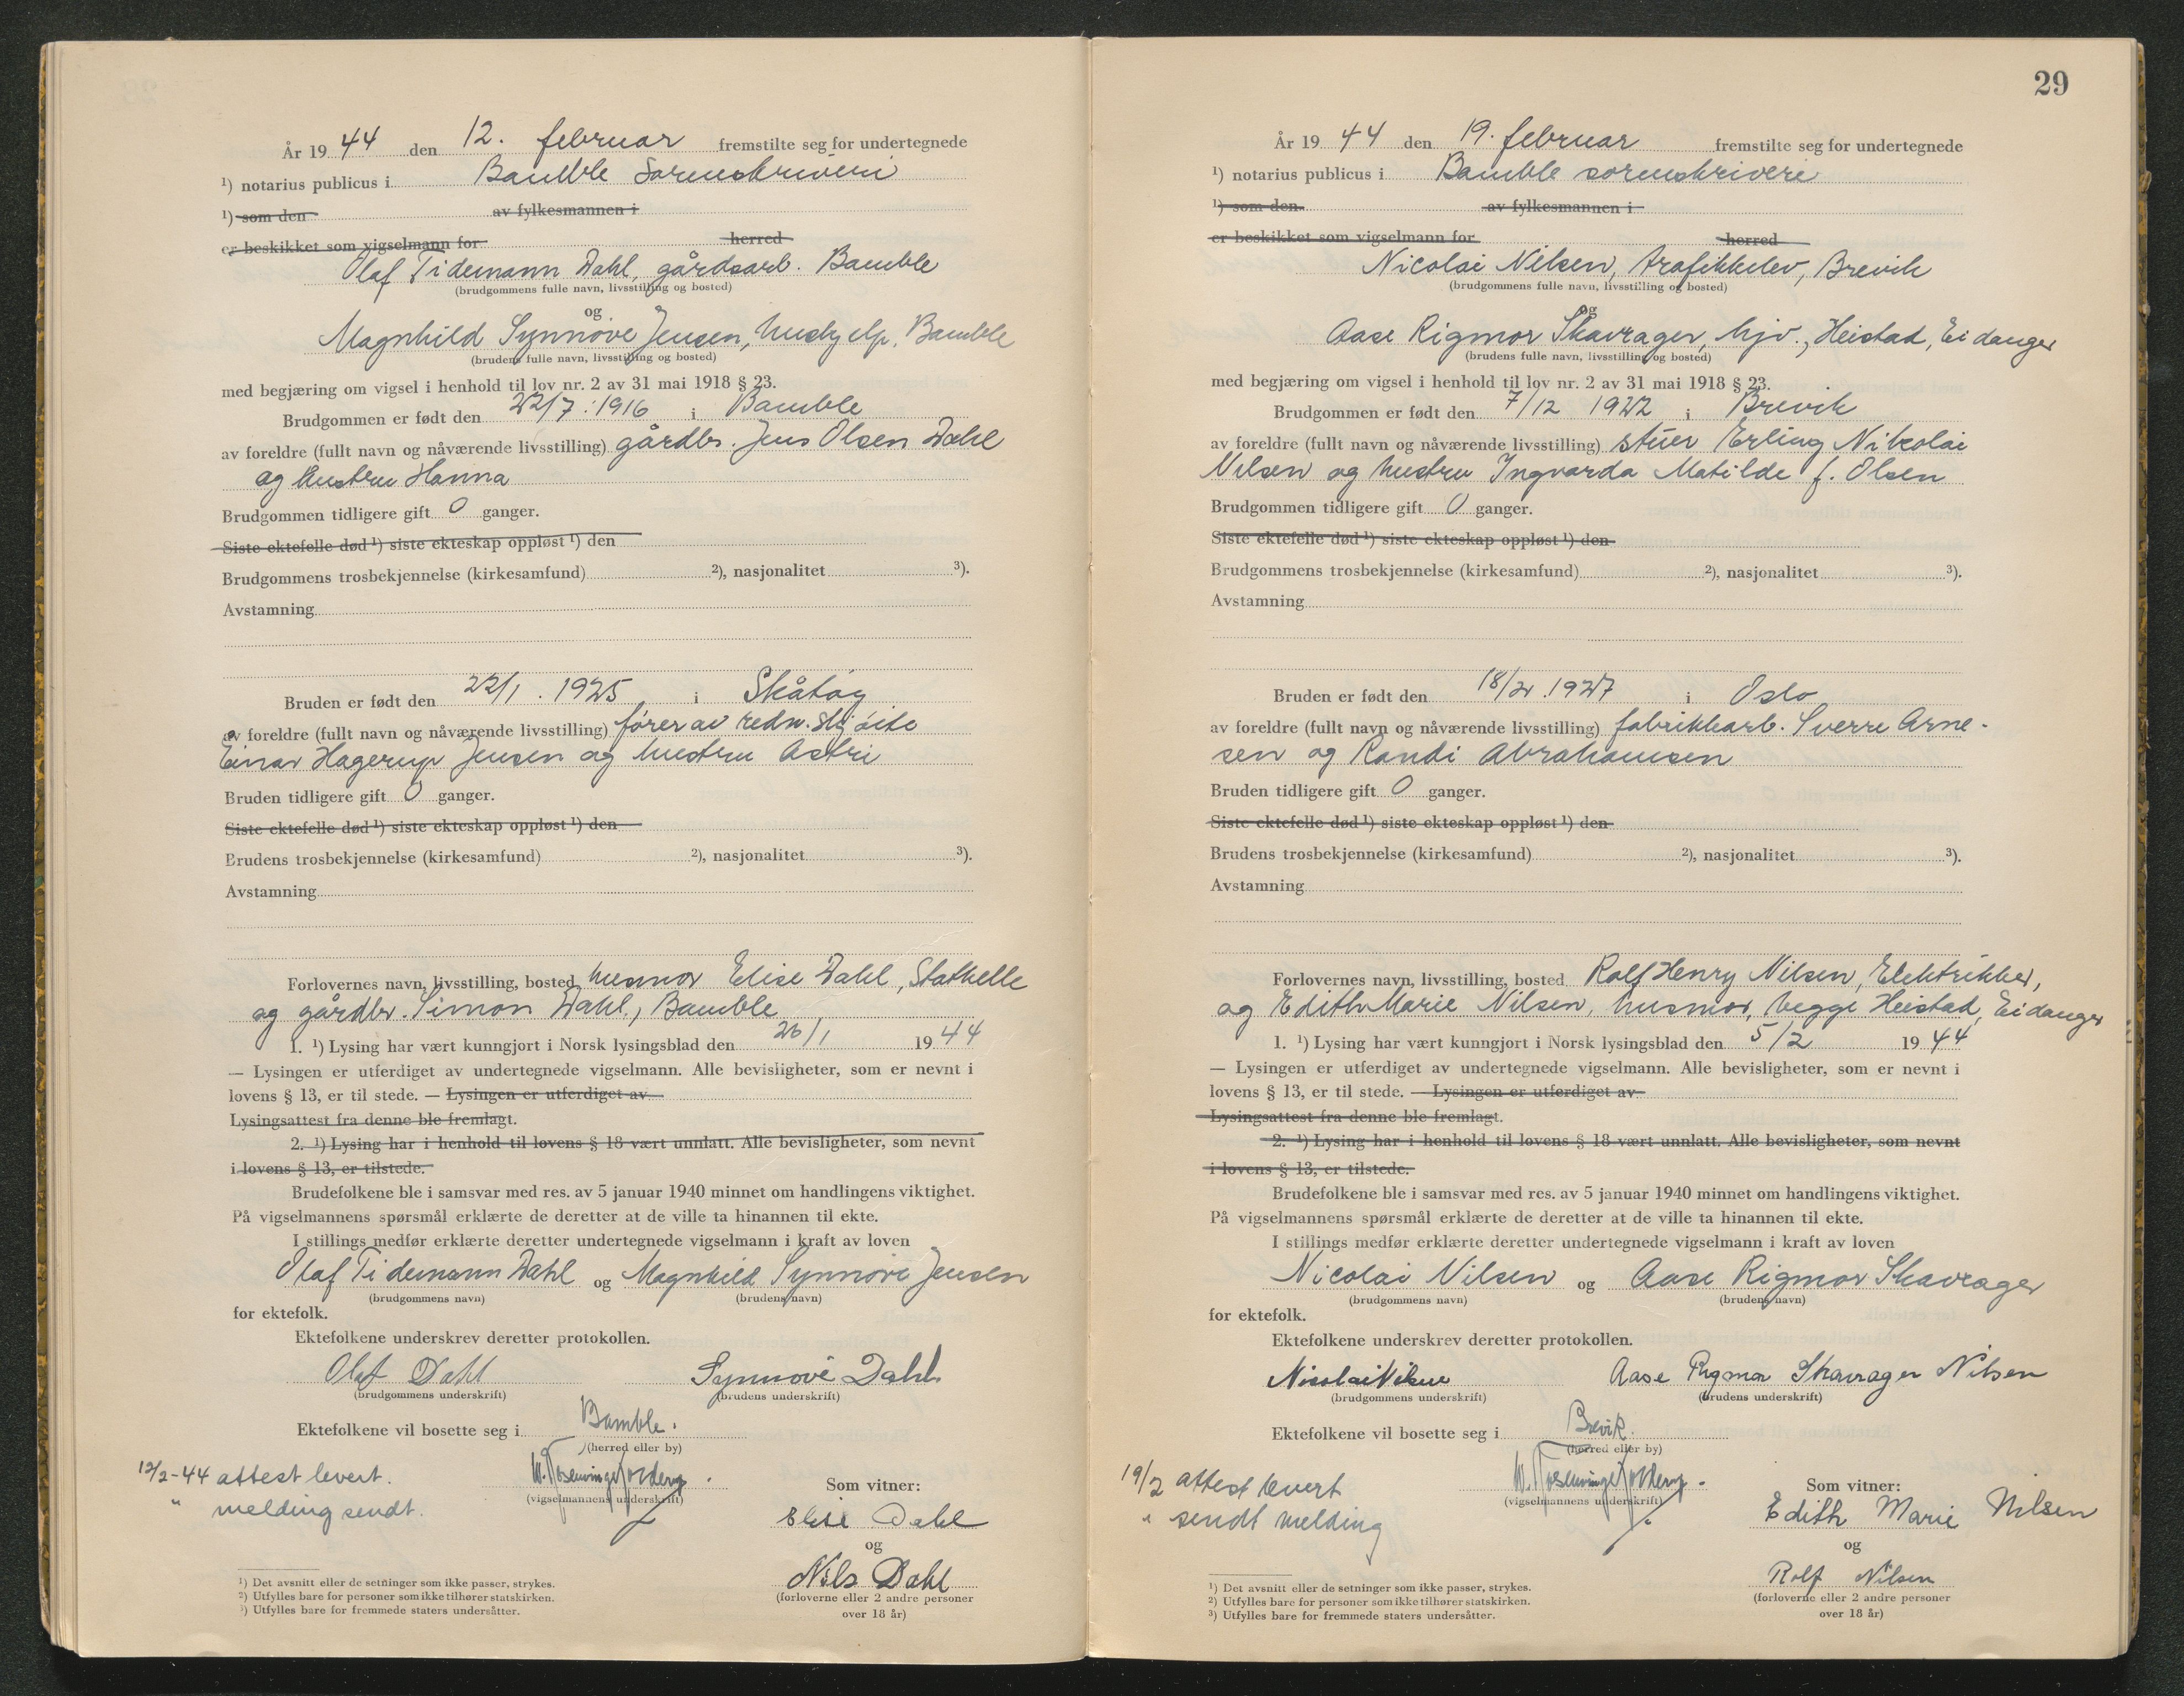 År 19 44 den 12. februar fremstilte seg for undertegnede
¹) notarius publicus i Bamble Sorenskriveri
¹) som den av fylkesmannen i
er beskikket som vigselmann for herred
Olaf Tidemann Dahl, gårdsarb. Bamble
(brudgommens fulle navn, livsstilling og bosted)
og
Magnhild Synnøve Jensen, hushjelp, Bamble
(brudens fulle navn, livsstilling og bosted)
med begjæring om vigsel i henhold til lov nr. 2 av 31 mai 1918 § 23.
Brudgommen er født den 22/7. 1916 i Bamble
av foreldre (fullt navn og nåværende livsstilling) gårdbr. Jens Olsen Dahl
og hustru Hanna
Brudgommen tidligere gift 0 ganger.
Siste ektefelle død ¹) siste ekteskap oppløst ¹) den
Brudgommens trosbekjennelse (kirkesamfund) ²), nasjonalitet ³).
Avstamning
Bruden er født den 22/1. 1925 i Skåtøy
av foreldre (fullt navn og nåværende livsstilling) fører av redn. skjøite
Einar Hagerup Jensen og hustru Astri
Bruden tidligere gift 0 ganger.
Siste ektefelle død ¹) siste ekteskap oppløst ¹) den
Brudens trosbekjennelse (kirkesamfund) ²), nasjonalitet ³).
Avstamning
Forlovernes navn, livsstilling, bosted husmor Elise Dahl, Stathelle
og gårdbr. Simon Dahl, Bamble
1. ¹) Lysing har vært kunngjort i Norsk lysingsblad den 26/1 19 44
— Lysingen er utferdiget av undertegnede vigselmann. Alle bevisligheter, som er nevnt i
lovens § 13, er til stede. — Lysingen er utferdiget av
Lysingsattest fra denne ble fremlagt.
2. ¹) Lysing har i henhold til lovens § 18 vært unnlatt. Alle bevisligheter, som nevnt
i lovens § 13, er tilstede.
Brudefolkene ble i samsvar med res. av 5 januar 1940 minnet om handlingens viktighet.
På vigselmannens spørsmål erklærte de deretter at de ville ta hinannen til ekte.
I stillings medfør erklærte deretter undertegnede vigselmann i kraft av loven
Olaf Tidemann Dahl og Magnhild Synnøve Jensen
(brudgommens navn) (brudens navn)
for ektefolk.
Ektefolkene underskrev deretter protokollen.
Olaf Dahl Synnøve Dahl
(brudgommens underskrift) (brudens underskrift)
Ektefolkene vil bosette seg i Bamble.
(herred eller by)
12/2-44 attest levert.
" melding sendt.
(vigselmannens underskrift)
Som vitner:
Elise Dahl
og
Nils Dahl
(forloverne eller 2 andre personer
over 18 år)
¹) Det avsnitt eller de setninger som ikke passer, strykes.
²) Utfylles bare for personer som ikke tilhører statskirken.
³) Utfylles bare for fremmede staters undersåtter.
29
År 19 44 den 19. februar fremstilte seg for undertegnede
¹) notarius publicus i Bamble sorenskriveri
¹) som den av fylkesmannen i
er beskikket som vigselmann for herred
Nicolai Nilsen, trafikkelev, Brevik
(brudgommens fulle navn, livsstilling og bosted)
og
Aase Rigmor Skavrager, hjv., Heistad, Eidanger
(brudens fulle navn, livsstilling og bosted)
med begjæring om vigsel i henhold til lov nr. 2 av 31 mai 1918 § 23.
Brudgommen er født den 7/12 1922 i Brevik
av foreldre (fullt navn og nåværende livsstilling) stuer Erling Nikolai
Nilsen og hustru Ingvarda Matilde f. Olsen
Brudgommen tidligere gift 0 ganger.
Siste ektefelle død ¹) siste ekteskap oppløst ¹) den
Brudgommens trosbekjennelse (kirkesamfund) ²), nasjonalitet ³).
Avstamning
Bruden er født den 18/2. 1927 i Oslo
av foreldre (fullt navn og nåværende livsstilling) fabrikkarb. Sverre Arne-
sen og Randi Abrahamsen
Bruden tidligere gift 0 ganger.
Siste ektefelle død ¹) siste ekteskap oppløst ¹) den
Brudens trosbekjennelse (kirkesamfund) ²), nasjonalitet ³).
Avstamning
Forlovernes navn, livsstilling, bosted Rolf Henry Nilsen, Elektrikker,
og Edith Marie Nilsen, husmor, begge Heistad, Eidanger
1. ¹) Lysing har vært kunngjort i Norsk lysingsblad den 5/2 19 44
— Lysingen er utferdiget av undertegnede vigselmann. Alle bevisligheter, som er nevnt i
lovens § 13, er til stede. — Lysingen er utferdiget av
Lysingsattest fra denne ble fremlagt.
2. ¹) Lysing har i henhold til lovens § 18 vært unnlatt. Alle bevisligheter, som nevnt
i lovens § 13, er tilstede.
Brudefolkene ble i samsvar med res. av 5 januar 1940 minnet om handlingens viktighet.
På vigselmannens spørsmål erklærte de deretter at de ville ta hinannen til ekte.
I stillings medfør erklærte deretter undertegnede vigselmann i kraft av loven
Nicolai Nilsen og Aase Rigmor Skavrager
(brudgommens navn) (brudens navn)
for ektefolk.
Ektefolkene underskrev deretter protokollen.
Nicolai Nilsen Aase Rigmor Skavrager Nilsen
(brudgommens underskrift) (brudens underskrift)
Ektefolkene vil bosette seg i Brevik.
(herred eller by)
19/2 attest levert
" sendt melding
(vigselmannens underskrift)
Som vitner:
Edith Marie Nilsen
og
Rolf Nilsen
(forloverne eller 2 andre personer
over 18 år)
¹) Det avsnitt eller de setninger som ikke passer, strykes.
²) Utfylles bare for personer som ikke tilhører statskirken.
³) Utfylles bare for fremmede staters undersåtter.